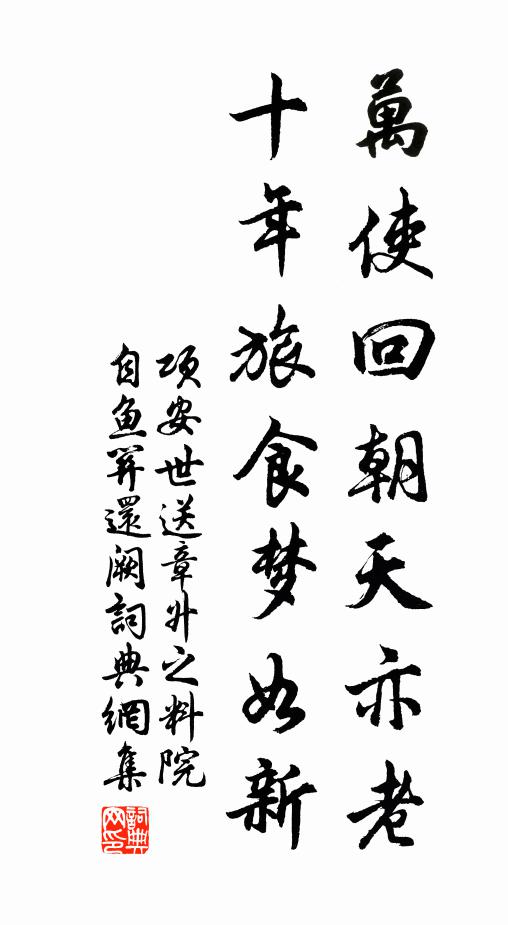 萬使回朝天亦老
十年旅食梦如新
項安世送章升之料院
自魚笄還阙詞典網集
詞典网印